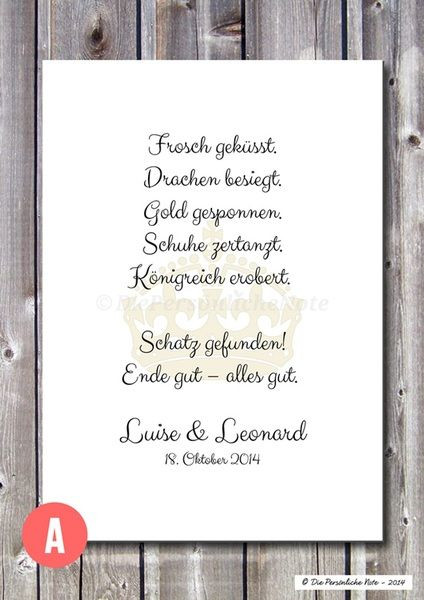 Frosch geküsst.
Drachen besiegt.
Gold gesponnen.
Schuhe zertanzt.
Königreich erobert.
©DiePersönlicheNote
Schatz gefunden!
Ende gut – alles gut.
Luise & Leonard
18. Oktober 2014
A
© Die Persönliche Note - 2014